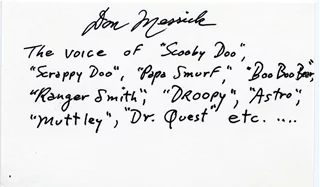 Don Messick
The voice of "Scooby Doo",
"Scrappy Doo", "Papa Smurf," "Boo Boo Bear,"
"Ranger Smith", "DROOPY", "Astro",
"Muttley", "Dr. Quest" etc. ....